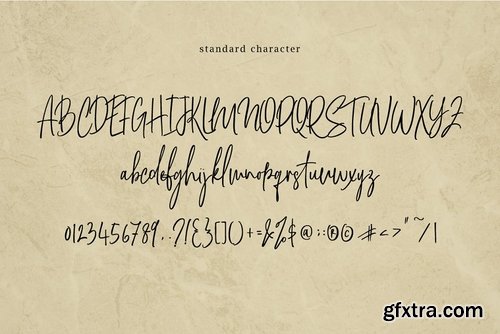 standard character
ABCDEFGHIJKLMNOPQRSTUVWXYZ
abcdefghijklmnopqrstuvwxyz
0123456789.,?!{}[]()+=&%$@:;®©#<>"~/|
gfxtra.com